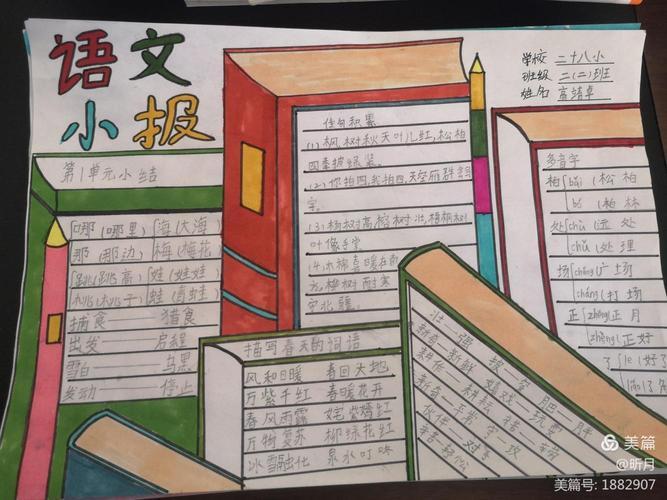 语文
小报
学校 二十八小
班级 二(二)班
姓名 高靖卓
第1单元小结
哪(哪里) 海(大海)
那(那边) 梅(梅花)
跳(跳高) 娃(娃娃)
桃(桃子) 蛙(青蛙)
捕食 猎食
出发 启程
雪白 乌黑
发动 停止
佳句积累
(1)枫树秋天叶儿红,松柏
四季披绿装。
(2)你拍四,我拍四,天空雁群会写
字。
(3)杨树高,榕树壮,梧桐树
叶像手掌
(4)木棉喜暖在南
方,桦树耐寒
守北疆。
多音字
柏 bǎi 松柏
bó 柏林
处 chù 远处
chǔ 处理
场 chǎng 广场
cháng 打场
正 zhēng 正月
zhèng 正好
了 le 好了
描写春天的词语
风和日暖 春回大地
万紫千红 春暖花开
春风雨露 姹紫嫣红
万物复苏 柳绿花红
冰雪融化 泉水叮咚
壮—强
新奇—新鲜
美篇
@昕月
美篇号: 1882907